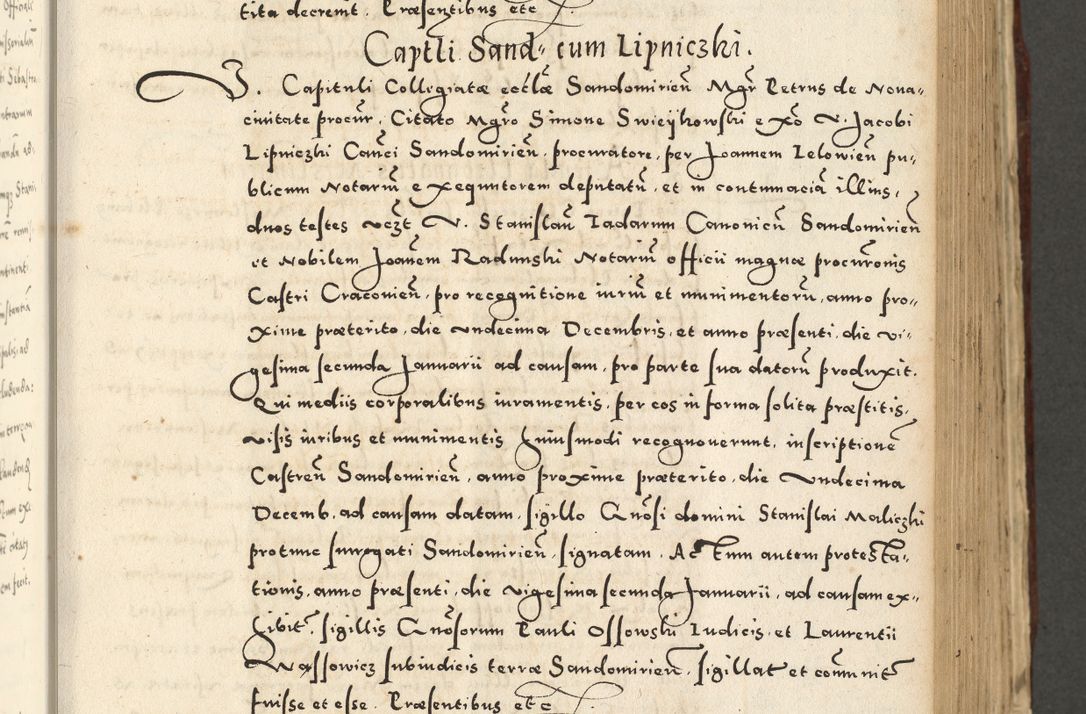 tita decrevit. Præsentibus etc.
Captli Sand= cum Lipniczki.
V. Capituli Collegiatæ eccłæ Sandomirieñ Mgr Petrus de Nova=
civitate procur. Citato Mgro Simone Swieykowski ex õ V. Jacobi
Lipniczki Canci Sandomirieñ, procuratore, per Joannem Lelowieñ pu=
blicum Notariũ exequutorem deputatũ, et in contumaciã illius,
duos testes vczt V. Stanislaũ Zadarum Canonicũ Sandomirieñ
et Nobilem Joanem Radunski Notariũ officii magnæ procurõnis
Castri Cracovieñ, pro recognitione iuriũ et munimentorũ, anno pro=
xime præterito, die undecima Decembris, et anno præsenti, die vi=
gesima secunda Januarii ad causam, pro parte sua datorũ produxit.
Qui mediis corporalibus iuramentis, per eos in forma solita præstitis,
visis iuribus et munimentis huiusmodi recognoverunt, inscriptionẽ
Castreñ Sandomirieñ, anno proxime præterito, die undecima
Decemb. ad causam datam, sigillo Gnosi domini Stanislai Maliczki
protunc surrogati Sandomirieñ, signatam. Actum autem protesta=
tionis, anno præsenti, die vigesima secunda Januarii, ad causam ex=
hibit, sigillis Gnosorum Pauli Ossowski Iudicis, et Laurentii
Wassowicz subiudicis terræ Sandomirieñ, sigillat et cõmunit
fuisse et esse. Præsentibus etc.